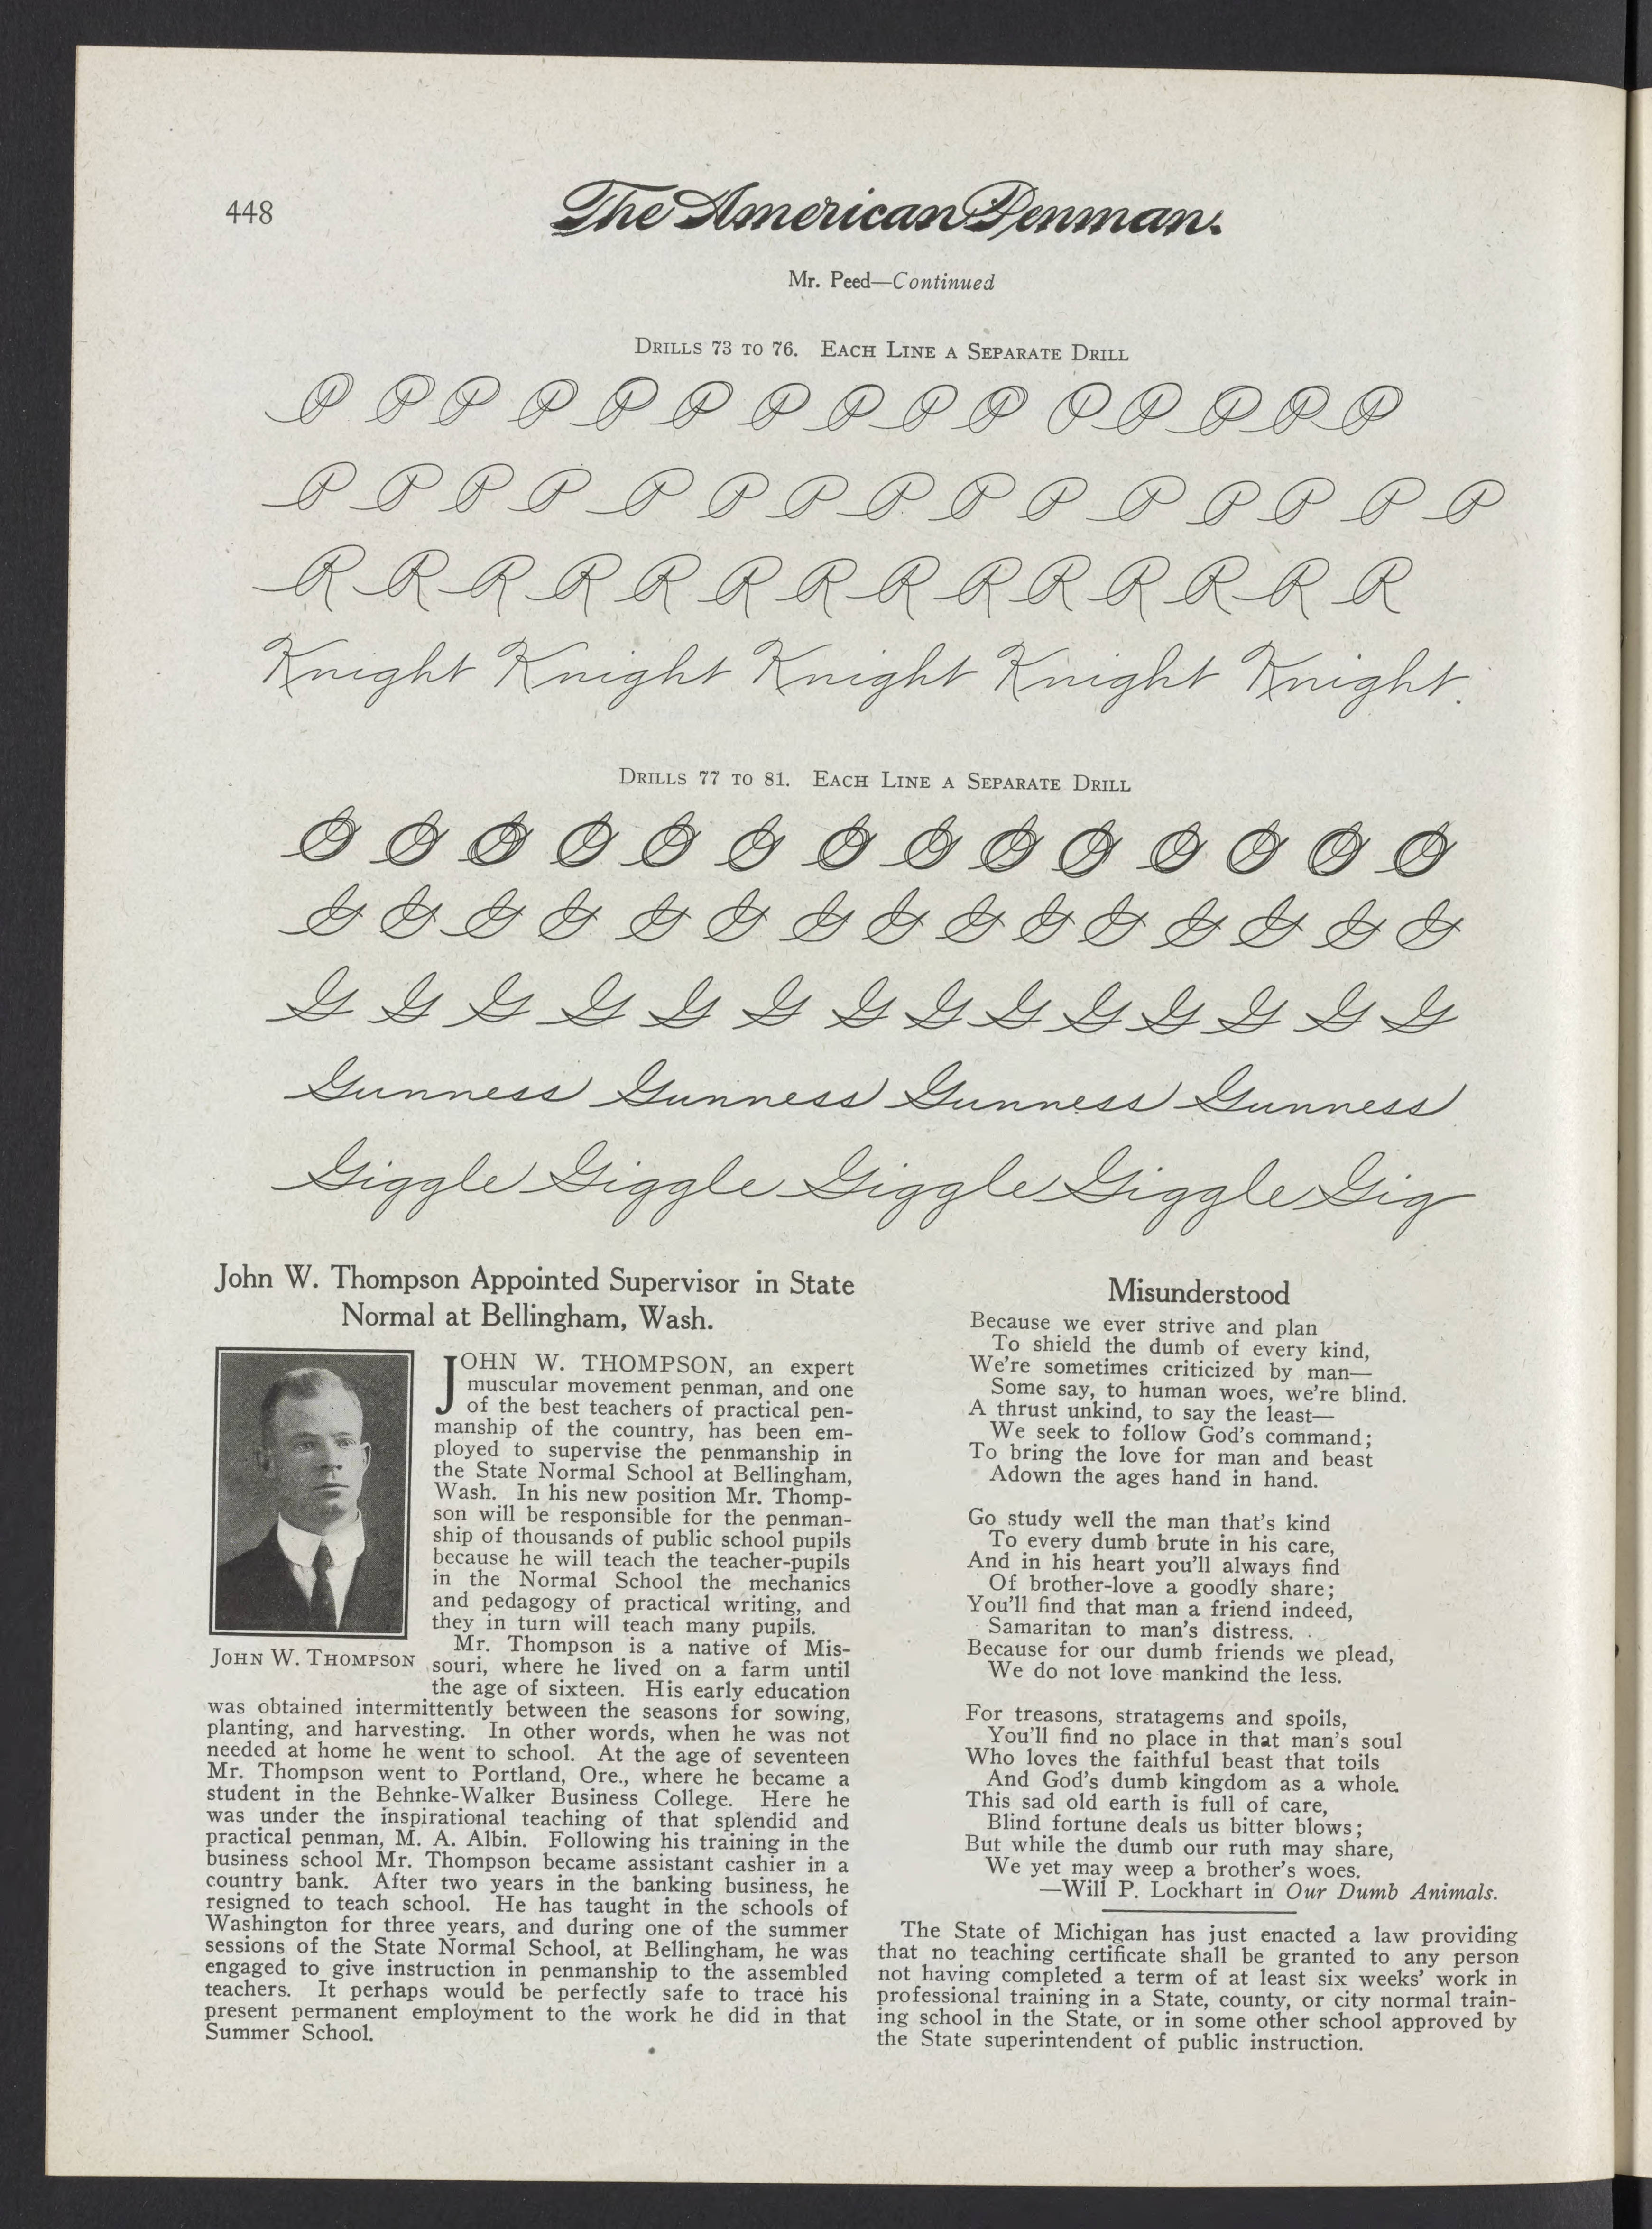 448
The American Penman.
Mr. Peed—Continued
Drills 73 to 76. Each Line a Separate Drill
P P P P P P P P P P P P P P P
P P P P P P P P P P P P P P P
R R R R R R R R R R R R R R
Knight Knight Knight Knight Knight.
Drills 77 to 81. Each Line a Separate Drill
G G G G G G G G G G G G G G
Gunness Gunness Gunness Gunness
Giggle Giggle Giggle Giggle Gig
John W. Thompson Appointed Supervisor in State
Normal at Bellingham, Wash.
JOHN W. THOMPSON, an expert
muscular movement penman, and one
of the best teachers of practical pen-
manship of the country, has been em-
ployed to supervise the penmanship in
the State Normal School at Bellingham,
Wash. In his new position Mr. Thomp-
son will be responsible for the penman-
ship of thousands of public school pupils
because he will teach the teacher-pupils
in the Normal School the mechanics
and pedagogy of practical writing, and
they in turn will teach many pupils.
John W. Thompson
Mr. Thompson is a native of Mis-
souri, where he lived on a farm until
the age of sixteen. His early education
was obtained intermittently between the seasons for sowing,
planting, and harvesting. In other words, when he was not
needed at home he went to school. At the age of seventeen
Mr. Thompson went to Portland, Ore., where he became a
student in the Behnke-Walker Business College. Here he
was under the inspirational teaching of that splendid and
practical penman, M. A. Albin. Following his training in the
business school Mr. Thompson became assistant cashier in a
country bank. After two years in the banking business, he
resigned to teach school. He has taught in the schools of
Washington for three years, and during one of the summer
sessions of the State Normal School, at Bellingham, he was
engaged to give instruction in penmanship to the assembled
teachers. It perhaps would be perfectly safe to trace his
present permanent employment to the work he did in that
Summer School.
Misunderstood
Because we ever strive and plan
To shield the dumb of every kind,
We're sometimes criticized by man—
Some say, to human woes, we're blind.
A thrust unkind, to say the least—
We seek to follow God's command;
To bring the love for man and beast
Adown the ages hand in hand.
Go study well the man that's kind
To every dumb brute in his care,
And in his heart you'll always find
Of brother-love a goodly share;
You'll find that man a friend indeed,
Samaritan to man's distress.
Because for our dumb friends we plead,
We do not love mankind the less.
For treasons, stratagems and spoils,
You'll find no place in that man's soul
Who loves the faithful beast that toils
And God's dumb kingdom as a whole.
This sad old earth is full of care,
Blind fortune deals us bitter blows;
But while the dumb our ruth may share,
We yet may weep a brother's woes.
—Will P. Lockhart in Our Dumb Animals.
The State of Michigan has just enacted a law providing
that no teaching certificate shall be granted to any person
not having completed a term of at least six weeks' work in
professional training in a State, county, or city normal train-
ing school in the State, or in some other school approved by
the State superintendent of public instruction.